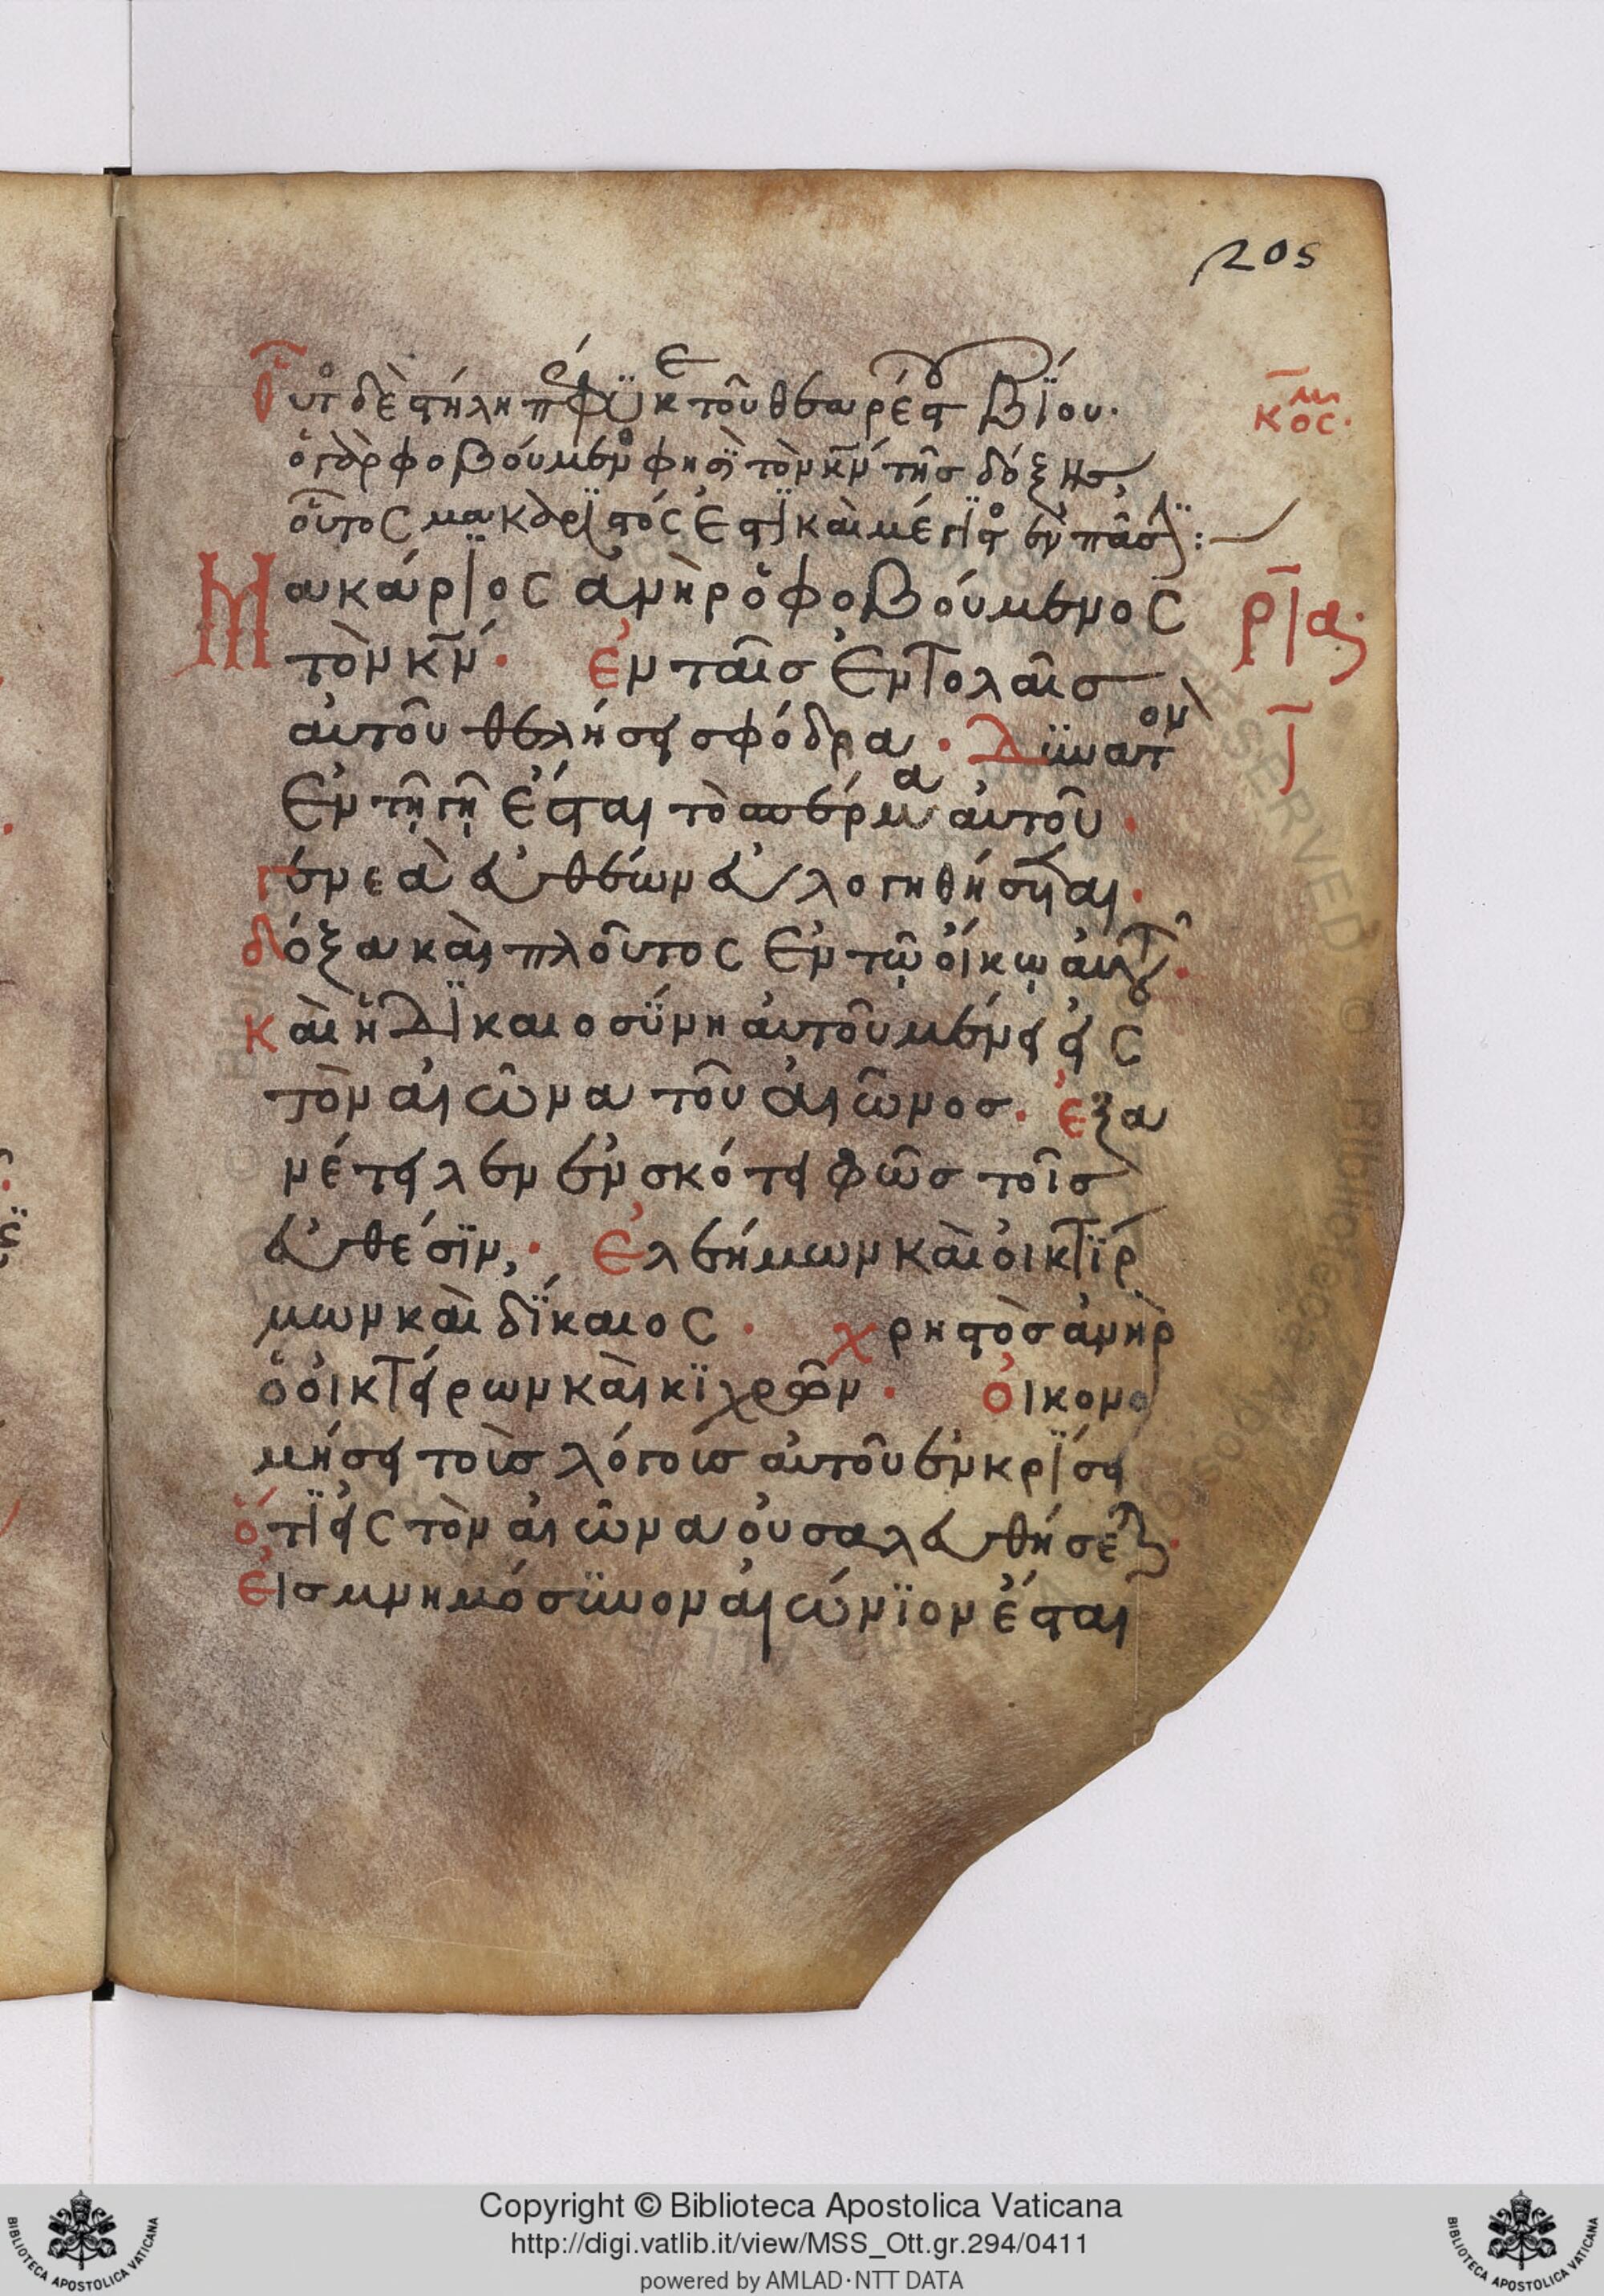 205
Οὗτος δὲ στήλη πέφυκε τοῦ θεαρέστου βίου·
κος·
ὁ γὰρ φοβούμενος φησὶ τὸν κν τῆς δόξης,
οὗτος μακαριστός ἐστι καὶ μέγιστος ἐν πᾶσι:
Μακάριος ἀνὴρ ὁ φοβούμενος
ρια·
τὸν κν· ἐν ταῖς ἐντολαῖς
αὐτοῦ θελήσει σφόδρα· Δυνατὸν
ἐν τῇ γῇ ἔσται τὸ σπέρμα αὐτοῦ·
γενεὰ εὐθείων εὐλογηθήσεται·
δόξα καὶ πλοῦτος ἐν τῷ οἴκῳ αὐτοῦ·
καὶ ἡ δικαιοσύνη αὐτοῦ μένει εἰς
τὸν αἰῶνα τοῦ αἰῶνος· ἐξα
νέτειλεν ἐν σκότει φῶς τοῖς
εὐθέσιν,· Ἐλεήμων καὶ οἰκτίρ
μων καὶ δίκαιος· χρηστὸς ἀνὴρ
ὁ οἰκτείρων καὶ κιχρῶν· οἰκονο
μήσει τοὺς λόγους αὐτοῦ ἐν κρίσει
ὅτι εἰς τὸν αἰῶνα οὐ σαλευθήσεται·
Εἰς μνημόσυνον αἰώνιον ἔσται
Copyright © Biblioteca Apostolica Vaticana
http://digi.vatlib.it/view/MSS_Ott.gr.294/0411
powered by AMLAD·NTT DATA
BIBLIOTECA APOSTOLICA VATICANA
BIBLIOTECA APOSTOLICA VATICANA